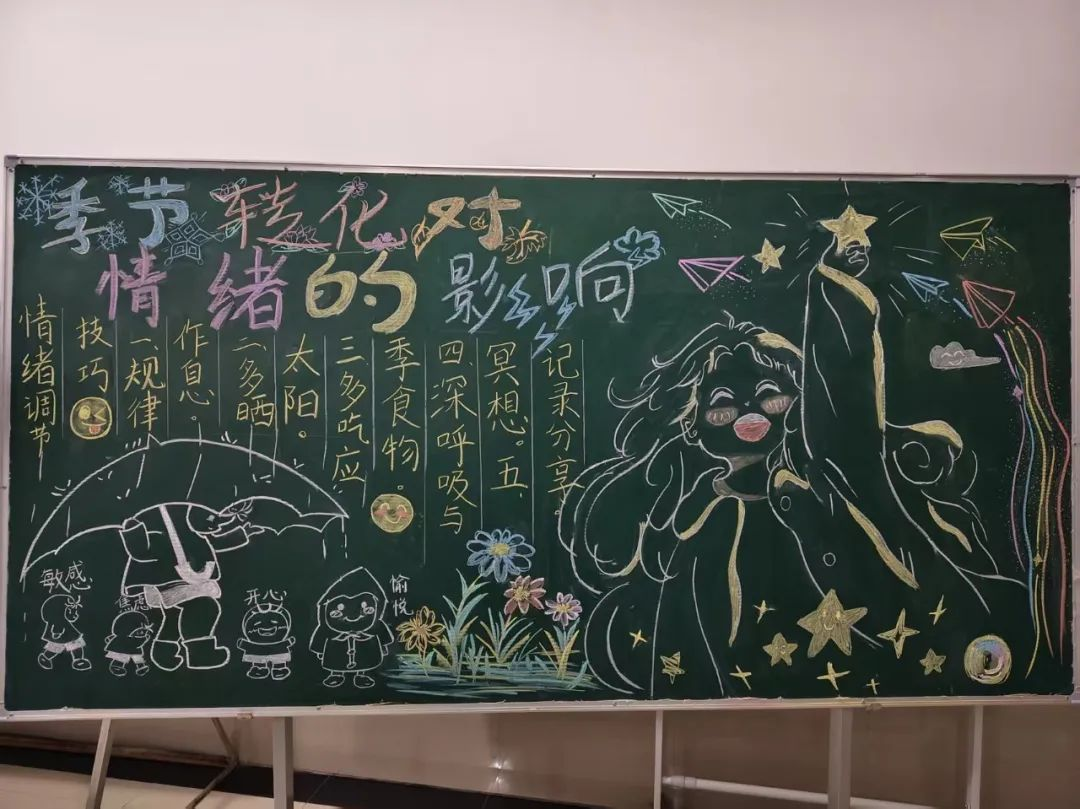 季节转化对
情绪的影响
情绪调节
技巧
一、规律
作息。
二、多晒
太阳。
三、多吃应
季食物。
四、深呼吸与
冥想。五、
记录分享。
敏感
焦虑
开心
愉悦